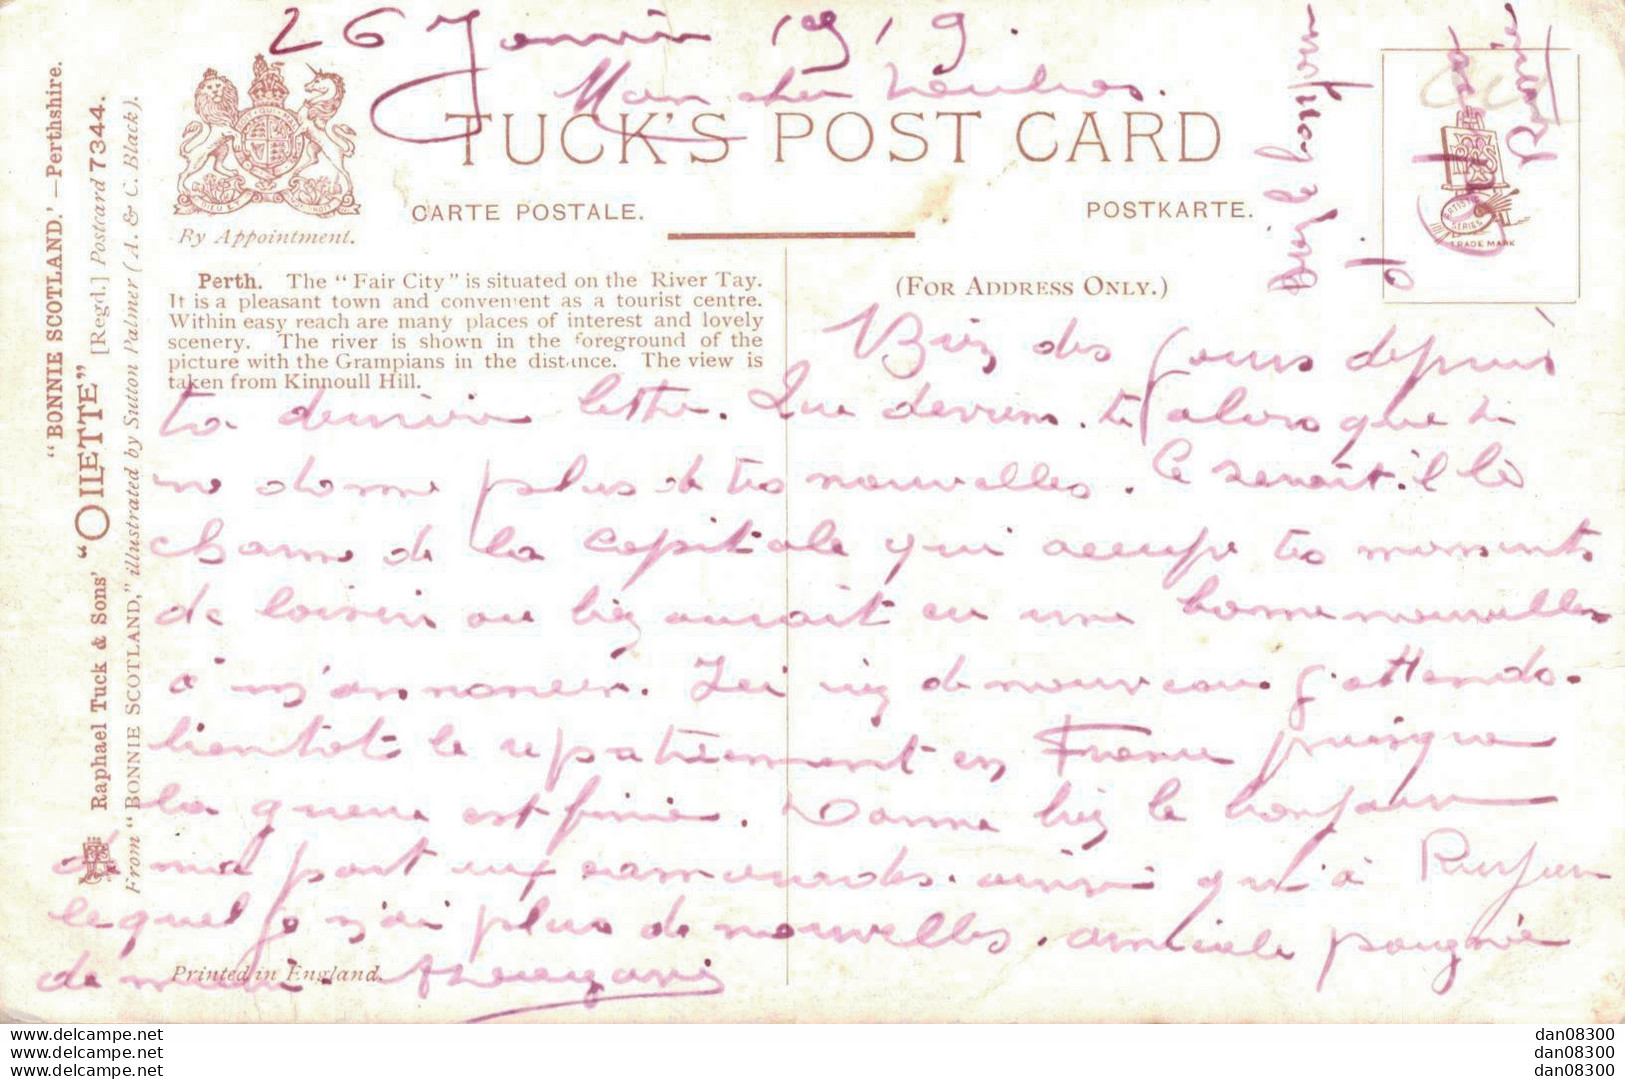 26 Janvier 1919.
Mon cher
TUCK'S POST CARD
CARTE POSTALE.
POSTKARTE.
By Appointment.
(FOR ADDRESS ONLY.)
ARTISTIC SERIES
TRADE MARK
"BONNIE SCOTLAND."—Perthshire.
Raphael Tuck & Sons' "OILETTE" [Regd.] Postcard 7344.
From "BONNIE SCOTLAND," illustrated by Sutton Palmer (A. & C. Black).
Perth. The "Fair City" is situated on the River Tay.
It is a pleasant town and convenient as a tourist centre.
Within easy reach are many places of interest and lovely
scenery. The river is shown in the foreground of the
picture with the Grampians in the distance. The view is
taken from Kinnoull Hill.
Bien des jours depuis
ta dernière lettre. Que deviens-tu alors que tu
ne donne plus de tes nouvelles. Ce serait-il le
charme de la capitale qui occupe tes moments
de loisir ou bien aurait eu une bonne nouvelles
à m'annoncer. Ici rien de nouveau j'attends
bientôt le rapatriement en France puisque
la guerre est finie. Donne bien le bonjour
de ma part aux camarades. ainsi qu'à
lequel je n'ai plus de nouvelles. amicale poignée
de main.
Printed in England.
le bonjour
à